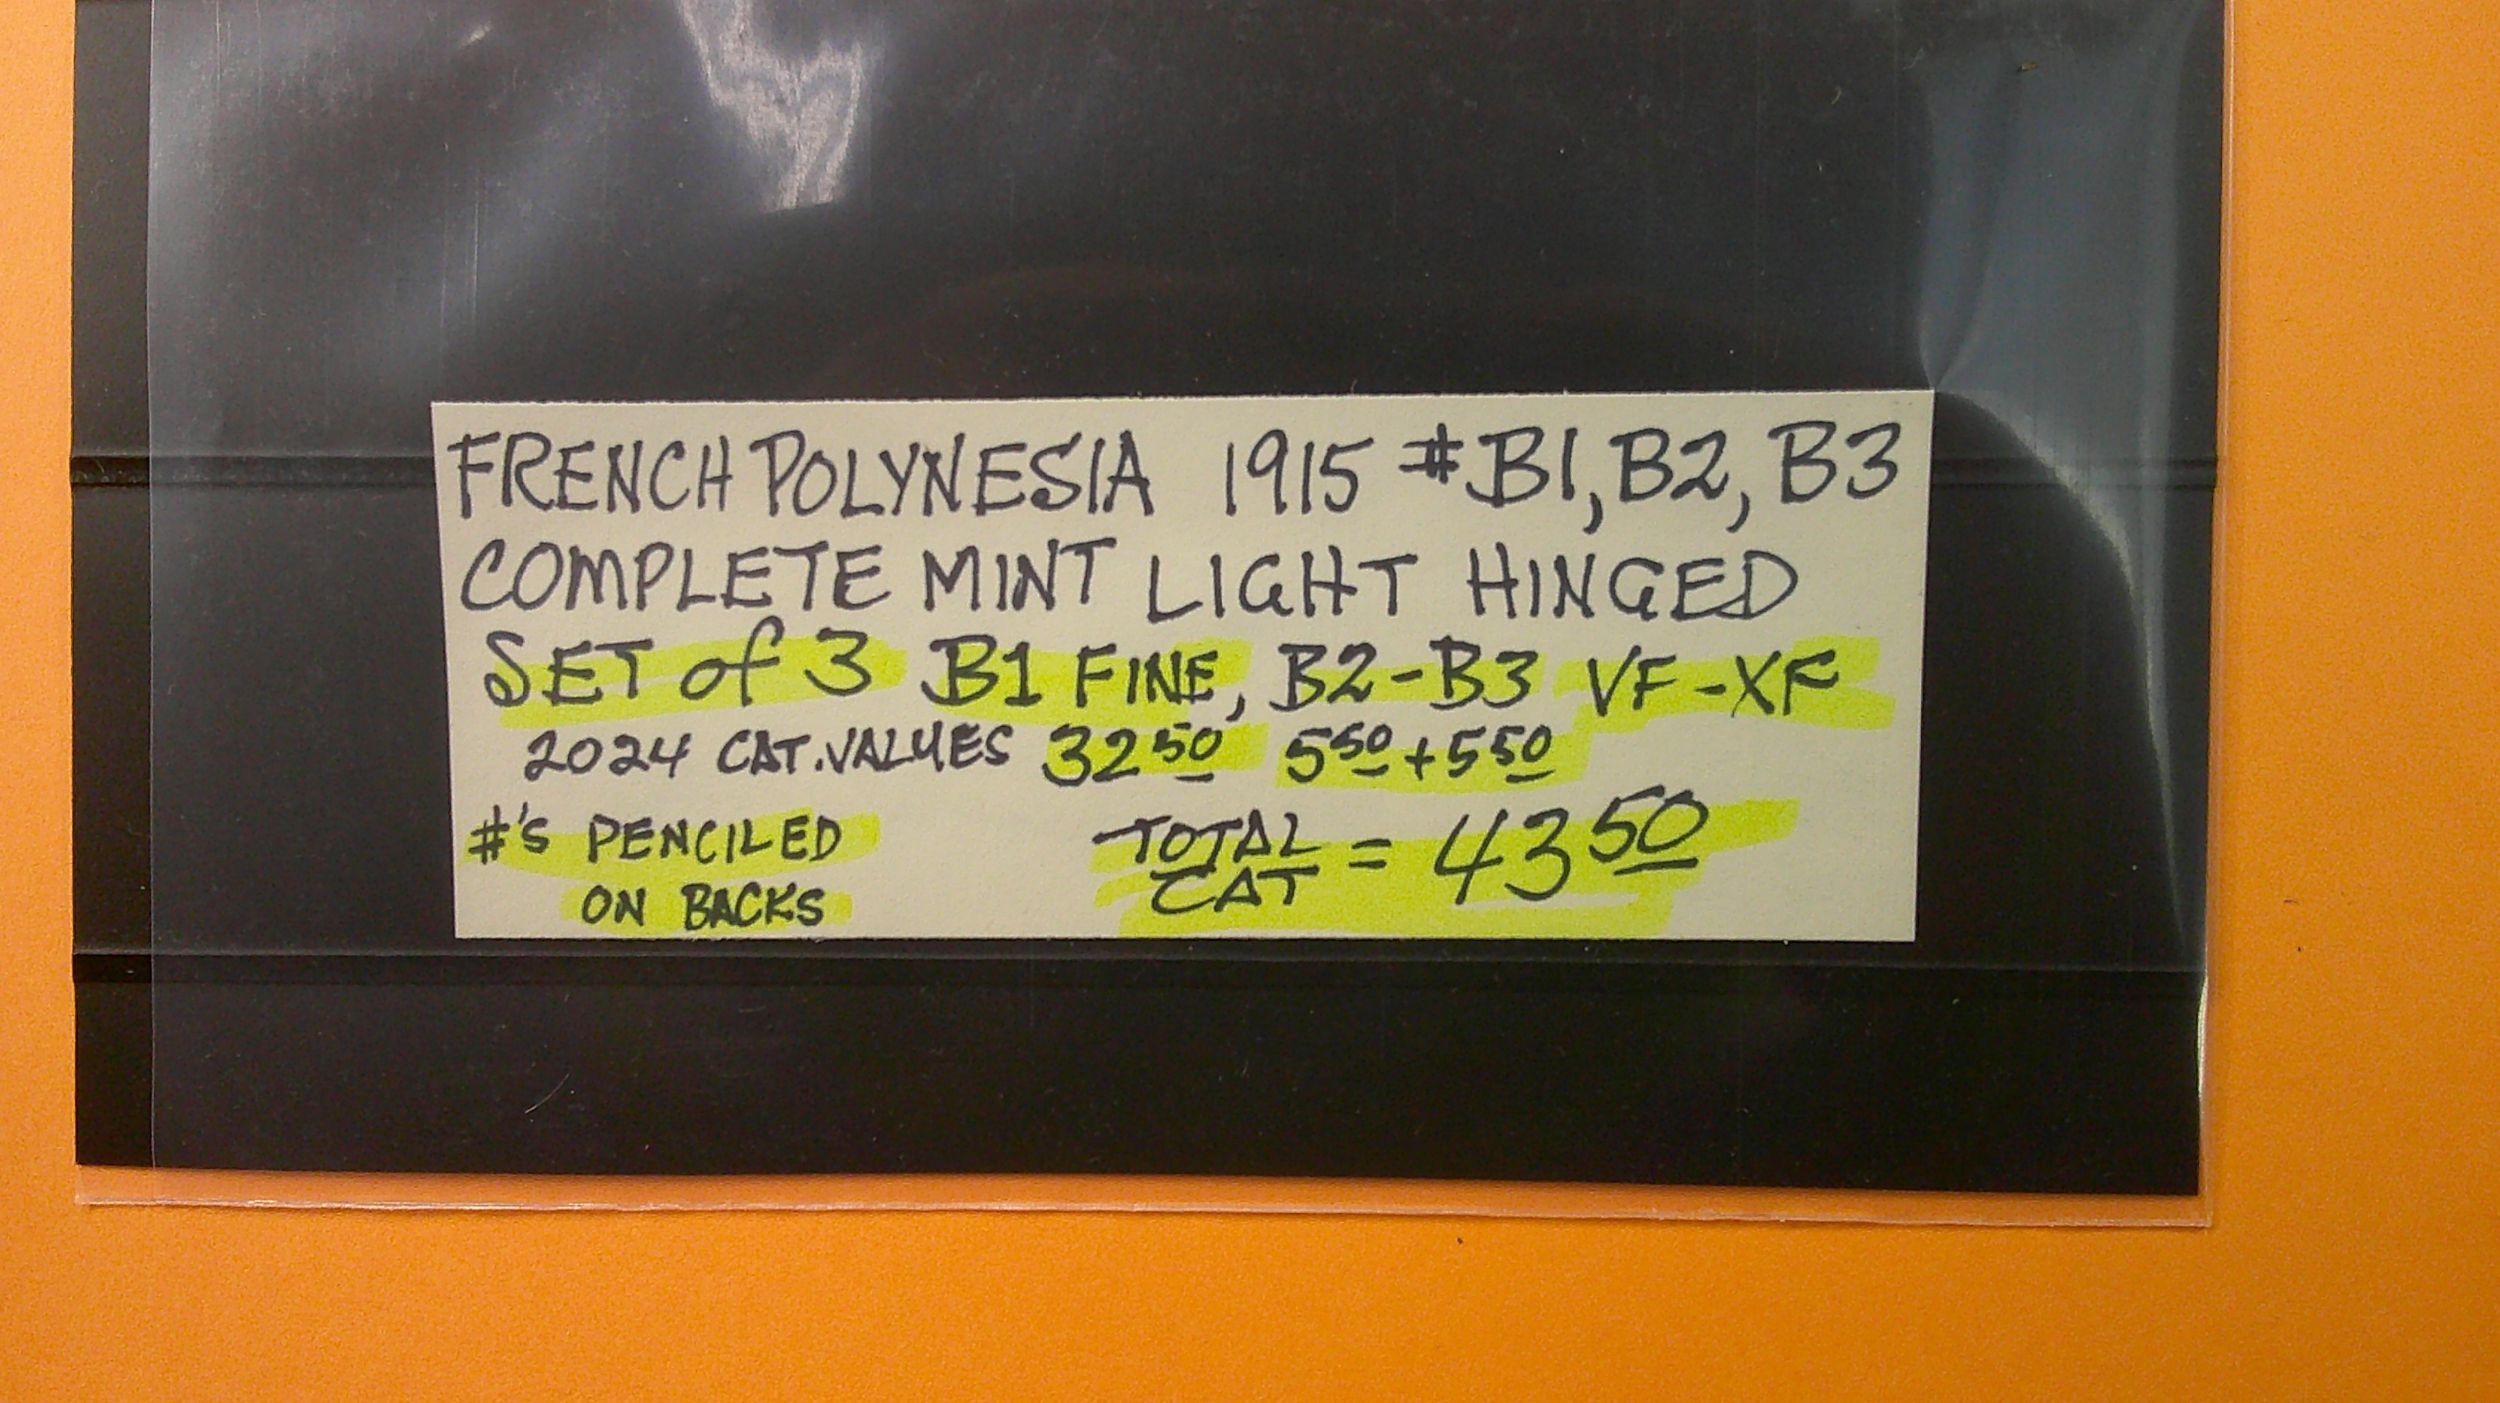 FRENCH POLYNESIA 1915 #B1, B2, B3
COMPLETE MINT LIGHT HINGED
SET of 3 B1 FINE, B2-B3 VF-XF
2024 CAT. VALUES 32 50 5 50 + 5 50
#'S PENCILED
ON BACKS
TOTAL
CAT = 43 50